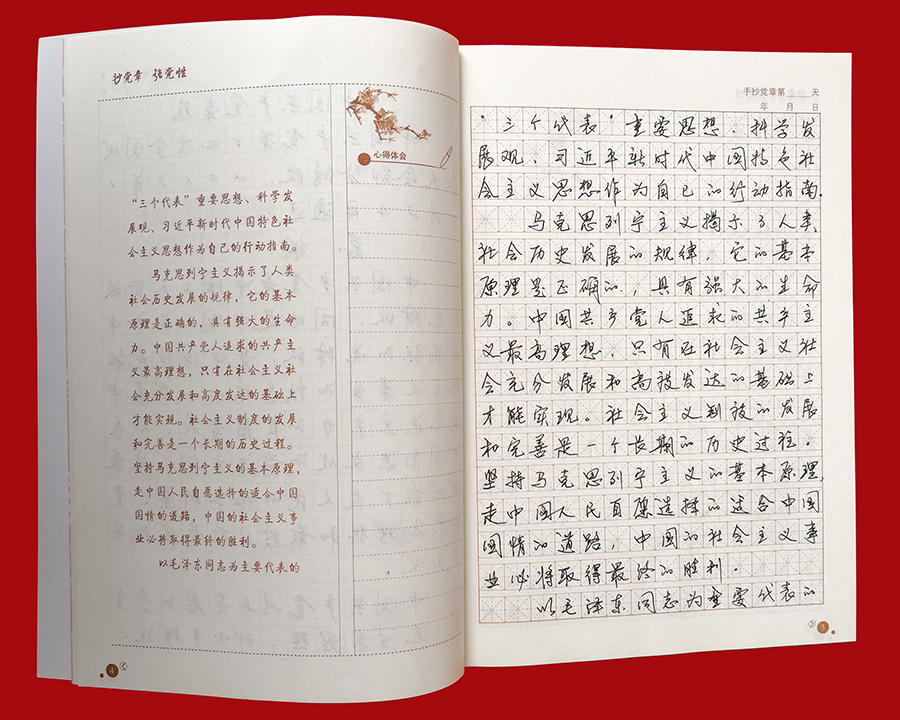 抄党章 强党性
心得体会
“三个代表”重要思想、科学发
展观、习近平新时代中国特色社
会主义思想作为自己的行动指南。
马克思列宁主义揭示了人类
社会历史发展的规律，它的基本
原理是正确的，具有强大的生命
力。中国共产党人追求的共产主
义最高理想，只有在社会主义社
会充分发展和高度发达的基础上
才能实现。社会主义制度的发展
和完善是一个长期的历史过程。
坚持马克思列宁主义的基本原理，
走中国人民自愿选择的适合中国
国情的道路，中国的社会主义事
业必将取得最终的胜利。
以毛泽东同志为主要代表的
4
手抄党章第 天
年 月 日
“三个代表”重要思想、科学发
展观、习近平新时代中国特色社
会主义思想作为自己的行动指南.
马克思列宁主义揭示了人类
社会历史发展的规律，它的基本
原理是正确的，具有强大的生命
力。中国共产党人追求的共产主
义最高理想，只有在社会主义社
会充分发展和高度发达的基础上
才能实现。社会主义制度的发展
和完善是一个长期的历史过程.
坚持马克思列宁主义的基本原理,
走中国人民自愿选择的适合中国
国情的道路，中国的社会主义事
业必将取得最终的胜利.
以毛泽东同志为重要代表的
5